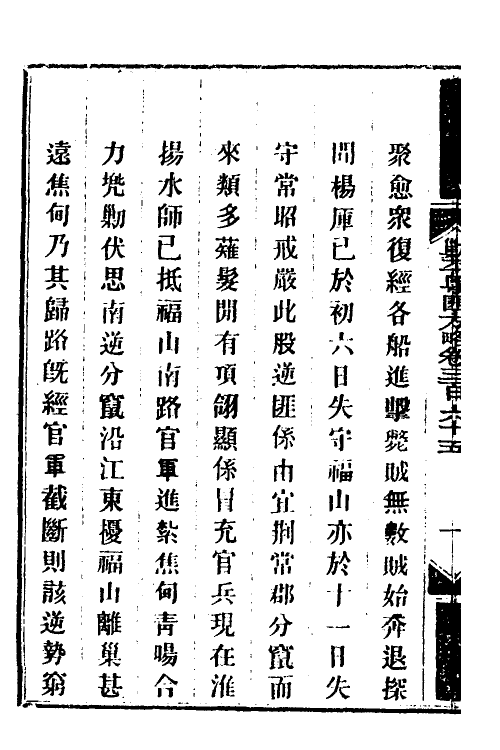 聚愈衆復經各船進擊斃賊無數賊始奔退探
聞楊厙已於初六日失守福山亦於十一日失
守常昭戒嚴此股逆匪係由宜荆常郡分竄而
來類多薙髮間有項翎顯係冒充官兵現在淮
揚水師已抵福山南路官軍進紮焦甸青暘合
力兜勦伏思南逆分竄沿江東擾福山離巢甚
遠焦甸乃其歸路旣經官軍截斷則該逆勢窮
匪方略卷三百六十五